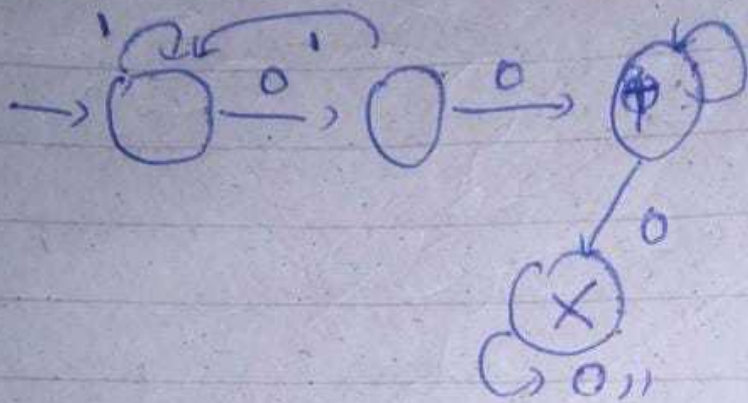 1 1
0 0
0
X
0,1